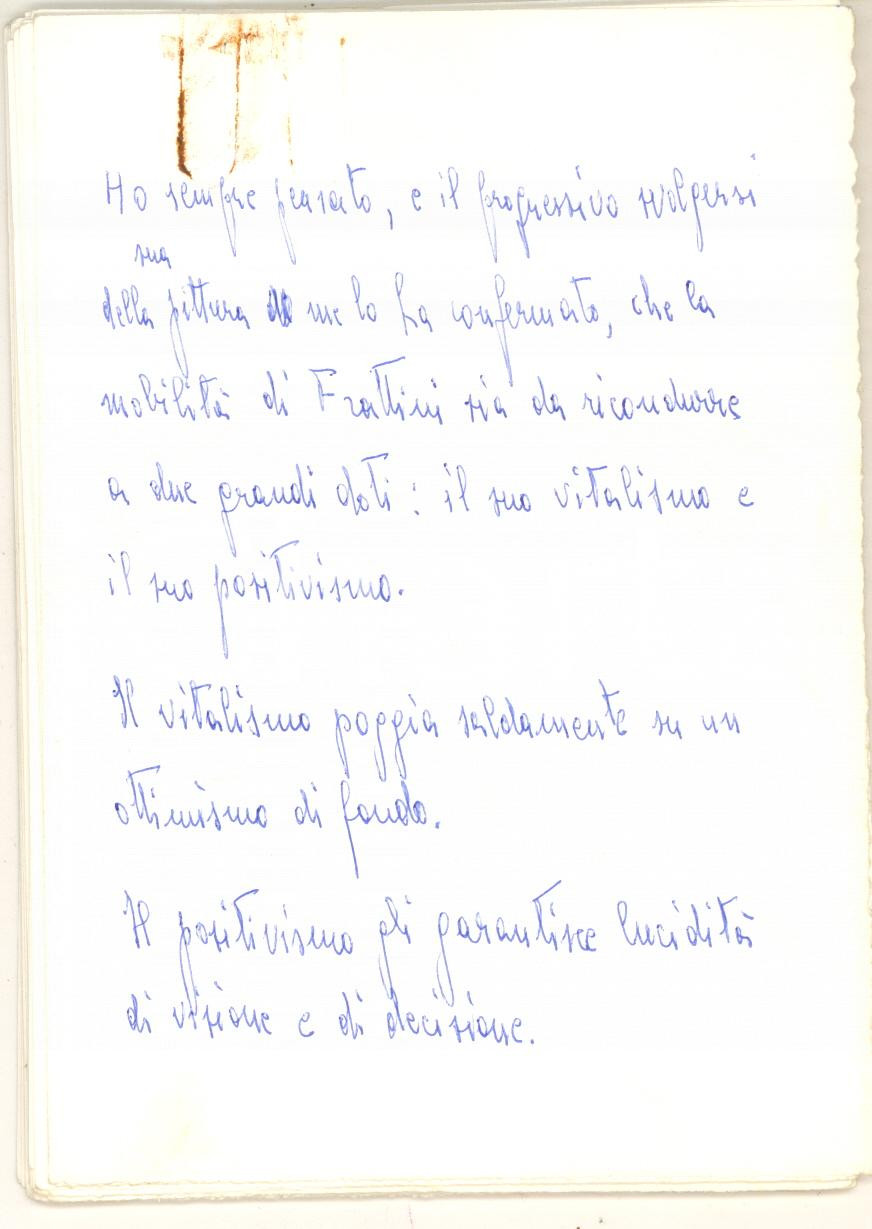 Ho sempre pensato, e il progressivo svolgersi
sua
della pittura me lo ha confermato, che la
mobilità di Frattini sia da ricondurre
a due grandi dati: il suo vitalismo e
il suo positivismo.
Il vitalismo poggia saldamente su un
ottimismo di fondo.
Il positivismo gli garantisce lucidità
di visione e di decisione.